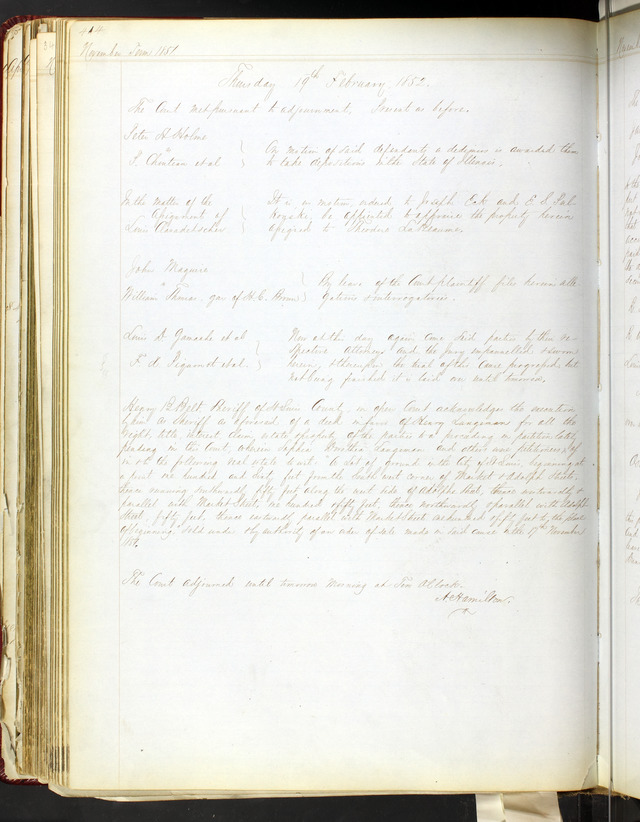 414
November Term 1851
Thursday 19th February 1852.
The Court met pursuant to adjournment. Present as before.
Peter A. Holmes
vs
P. Chouteau et al
On motion of said defendants a dedimus is awarded them
to take depositions in the State of Illinois.
In the matter of the
Assignment of
Louis
It is on motion, ordered, that Joseph Eck and E. S.
be appointed to appraise the property herein
assigned to Theodore LaBeaume.
John Maguire
vs
William Thomas gar. of H. C.
By leave of the Court plaintiff files herein alle
gations & interrogatories.
Louis D. et al
vs
F. et al.
Now at this day again come said parties by their re-
spective attorneys and the jury empannelled & sworn
herein & thereupon the trial of this cause progressed, but
not being finished it is laid over until tomorrow.
Henry B. Belt Sheriff of St Louis County, in open Court acknowledges the execution
by him as Sheriff as aforesaid of a deed in favor of Henry Langeman for all the
right, title, interest claim, estate & property of the parties to a proceeding in partition lately
pending in this Court, wherein Sophia Langeman and others were petitioners, of
in & to the following real estate to wit: A lot of ground in the City of St Louis, beginning at
a point one hundred and sixty feet from the South west corner of Market & Adolph Streets,
thence running southwardly fifty feet along the west side of Adolph Street, thence westwardly &
parallel with Market Street, one hundred & fifty feet, thence northwardly & parallel with Adolph
Street, fifty feet, thence eastwardly parallel with Market Street one hundred & fifty feet to the place
of beginning. Sold under & by authority of an order of sale made in said cause on the 17th November
The Court adjourned until tomorrow morning at Ten O'Clock.
A. Hamilton.